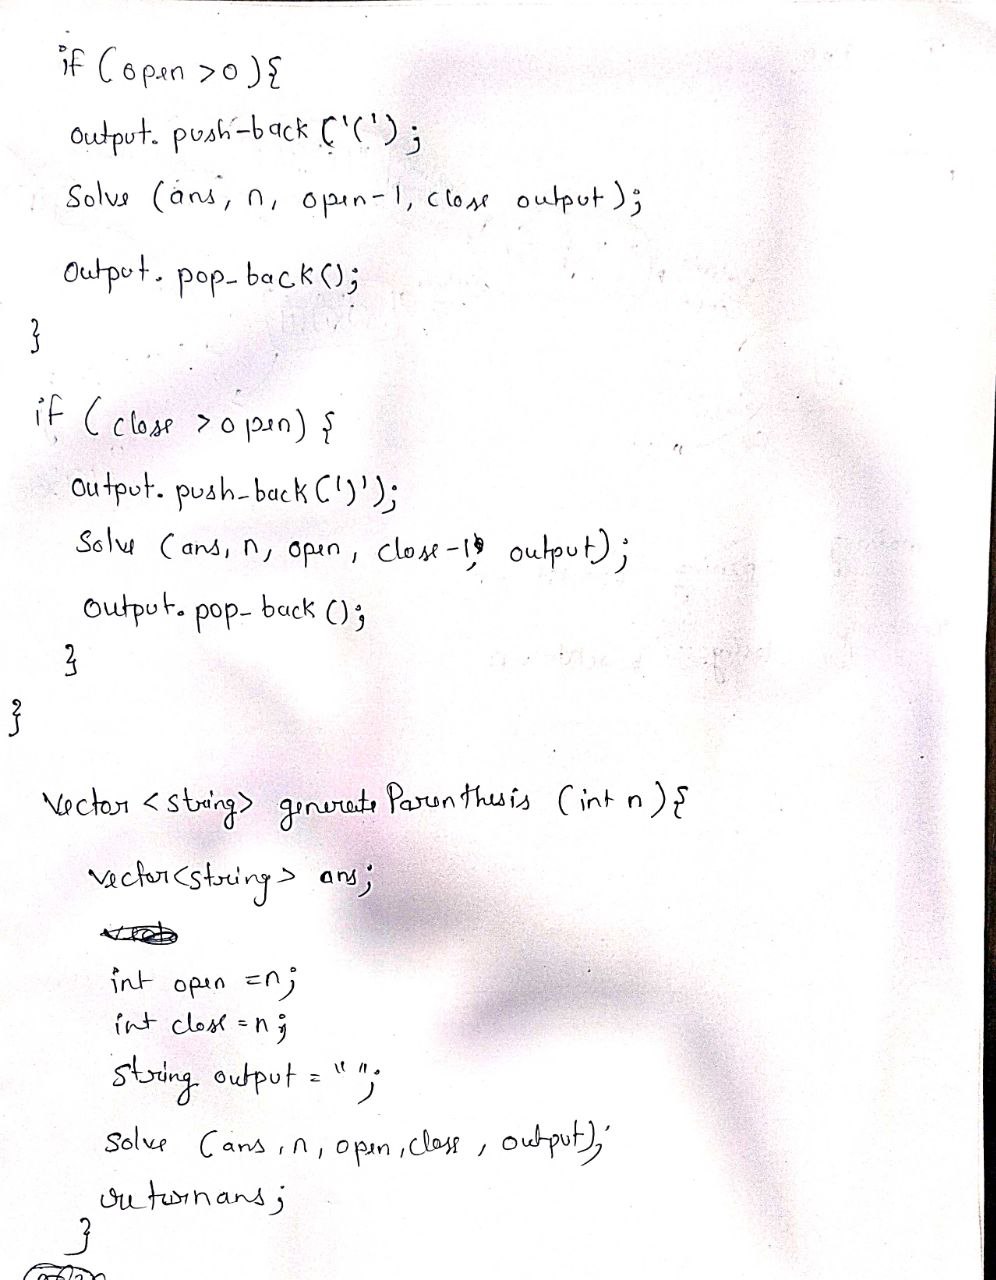 if (open >0){
output. push-back ('(');
Solve (ans, n, open-1, close output);
Output. pop_back();
}
if (close >open) {
output. push_back(')');
Solve (ans, n, open, close-1, output);
Output. pop_back ();
}
}
Vector <string> generate Parenthesis (int n){
vector<string> ans;
int open =n;
int close =n;
String output = "";
Solve (ans, n, open, close, output);
return ans;
}